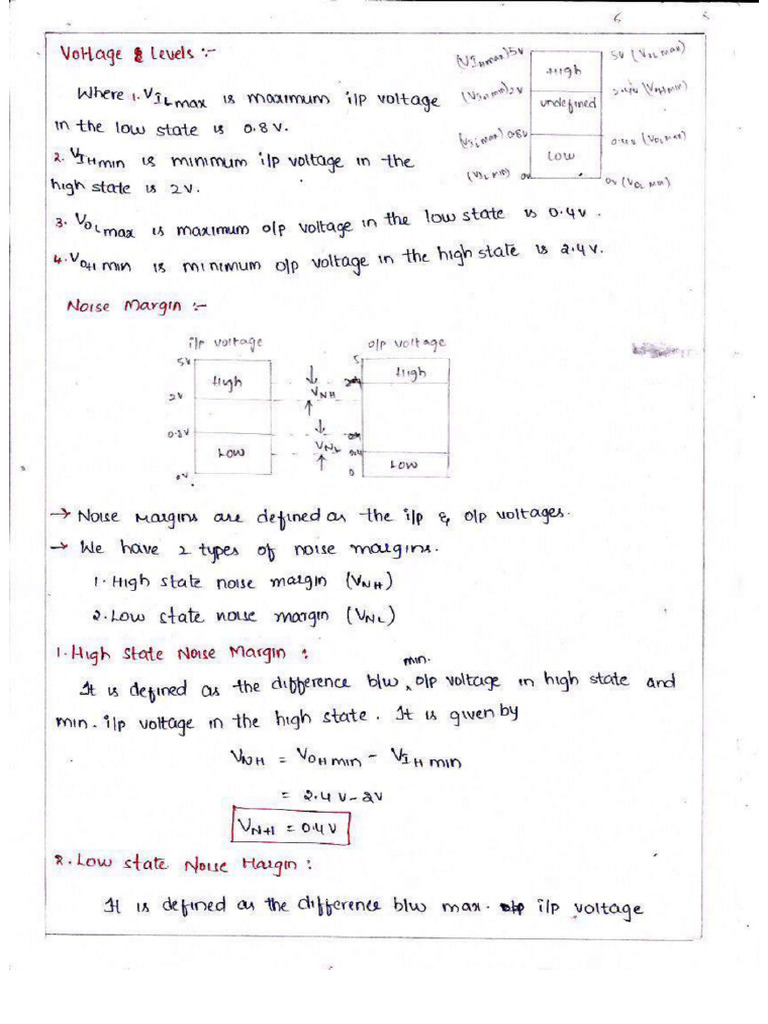 Voltage & Levels :-
Where 1. VILmax is maximum i/p voltage
in the low state is 0.8V.
2. VIHmin is minimum i/p voltage in the
high state is 2V.
3. VOLmax is maximum o/p voltage in the low state is 0.4V.
4. VOHmin is minimum o/p voltage in the high state is 2.4V.
(VIHmax) 5V
(VIHmin) 2V
(VILmax) 0.8V
(VIL MIN) 0V
High
undefined
LOW
0V (VOL MIN)
Noise Margin :-
i/p voltage
5V
2V
0.8V
0V
High
LOW
VNH
VNL
o/p voltage
5
0.4
0
High
LOW
→ Noise Margins are defined as the i/p & o/p voltages.
→ We have 2 types of noise margins.
1. High state noise margin (VNH)
2. Low state noise margin (VNL)
1. High State Noise Margin :
min.
It is defined as the difference b/w o/p voltage in high state and
min. i/p voltage in the high state. It is given by
VNH = VOHmin - VIHmin
= 2.4V-2V
VNH = 0.4V
2. Low state Noise Margin :
It is defined as the difference b/w max. i/p voltage